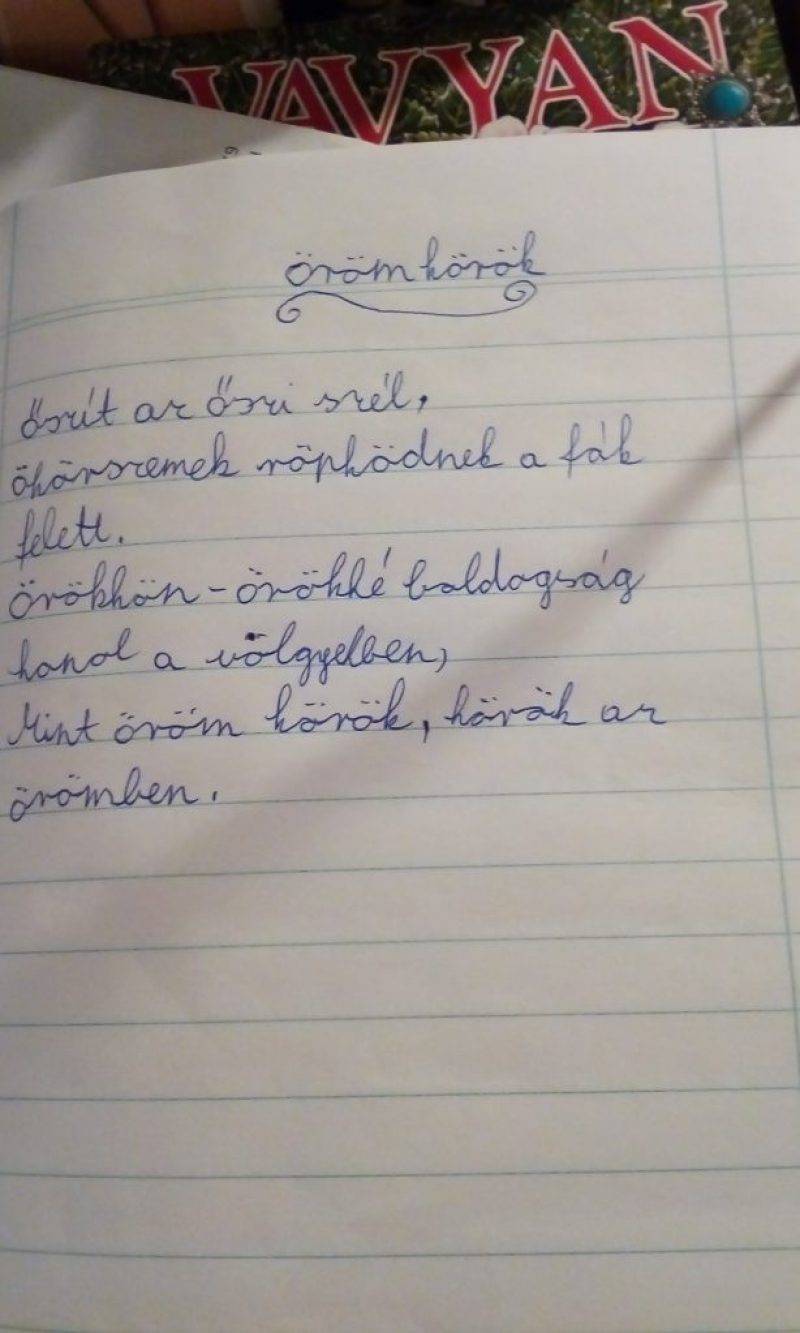 VAVYAN
örömkörök
őszít az őszi szél,
ökörszemek röpködnek a fák
felett.
örökkön-örökké boldogság
honol a völgyelben,
Mint öröm körök, körök az
örömben.